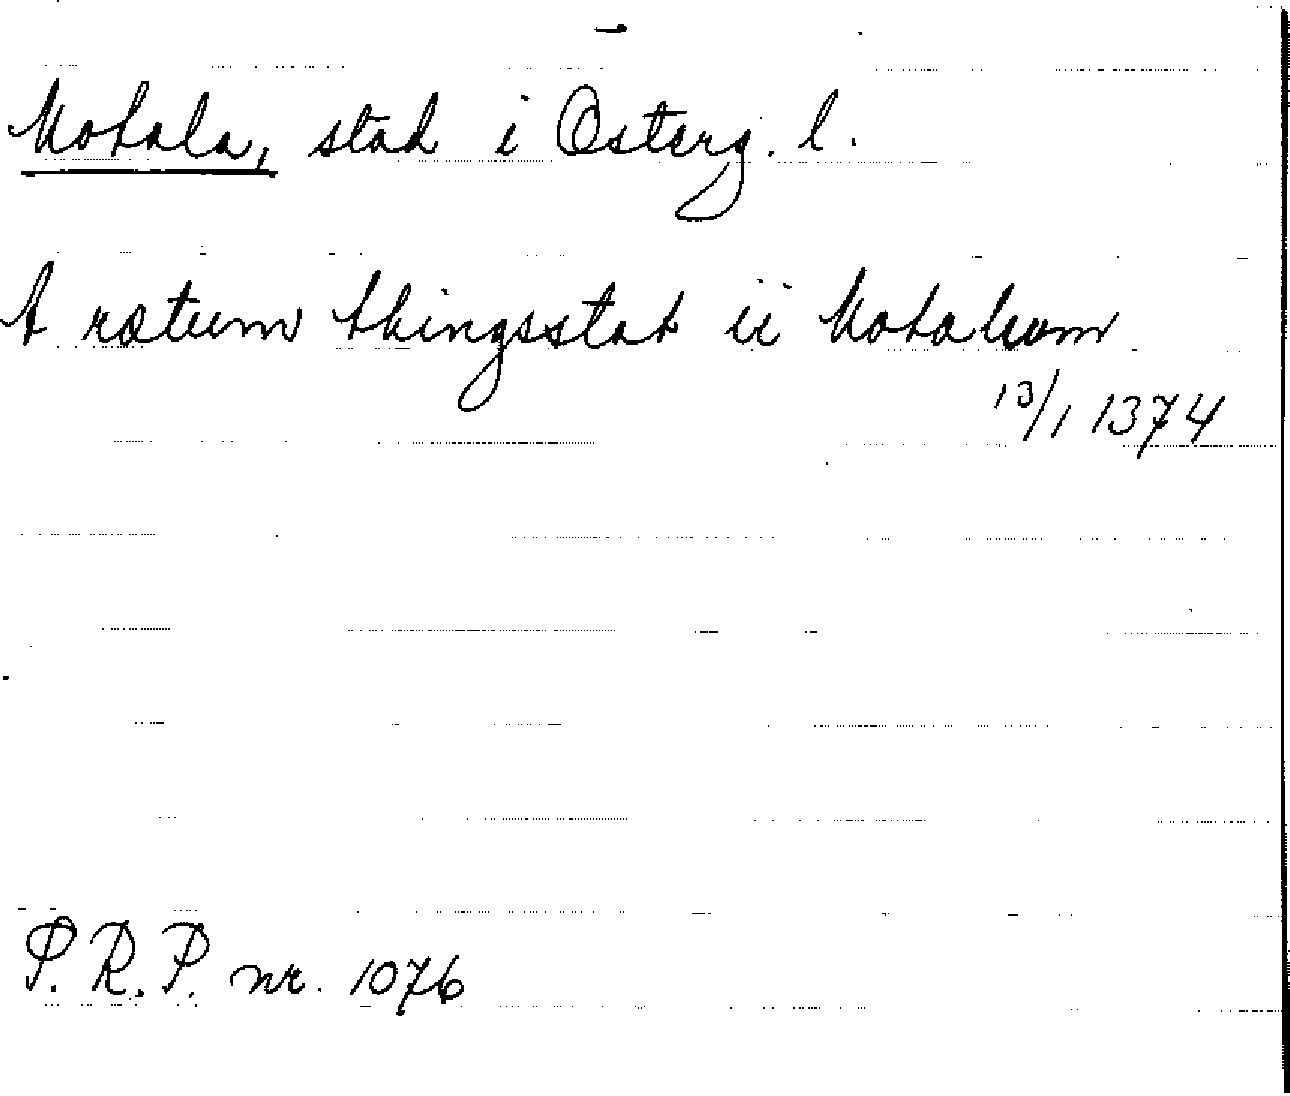 Motala, stad i Österg. l.
A rætum thingsstat ii Motalom
13/1 1374
P.R.P. nr. 1076